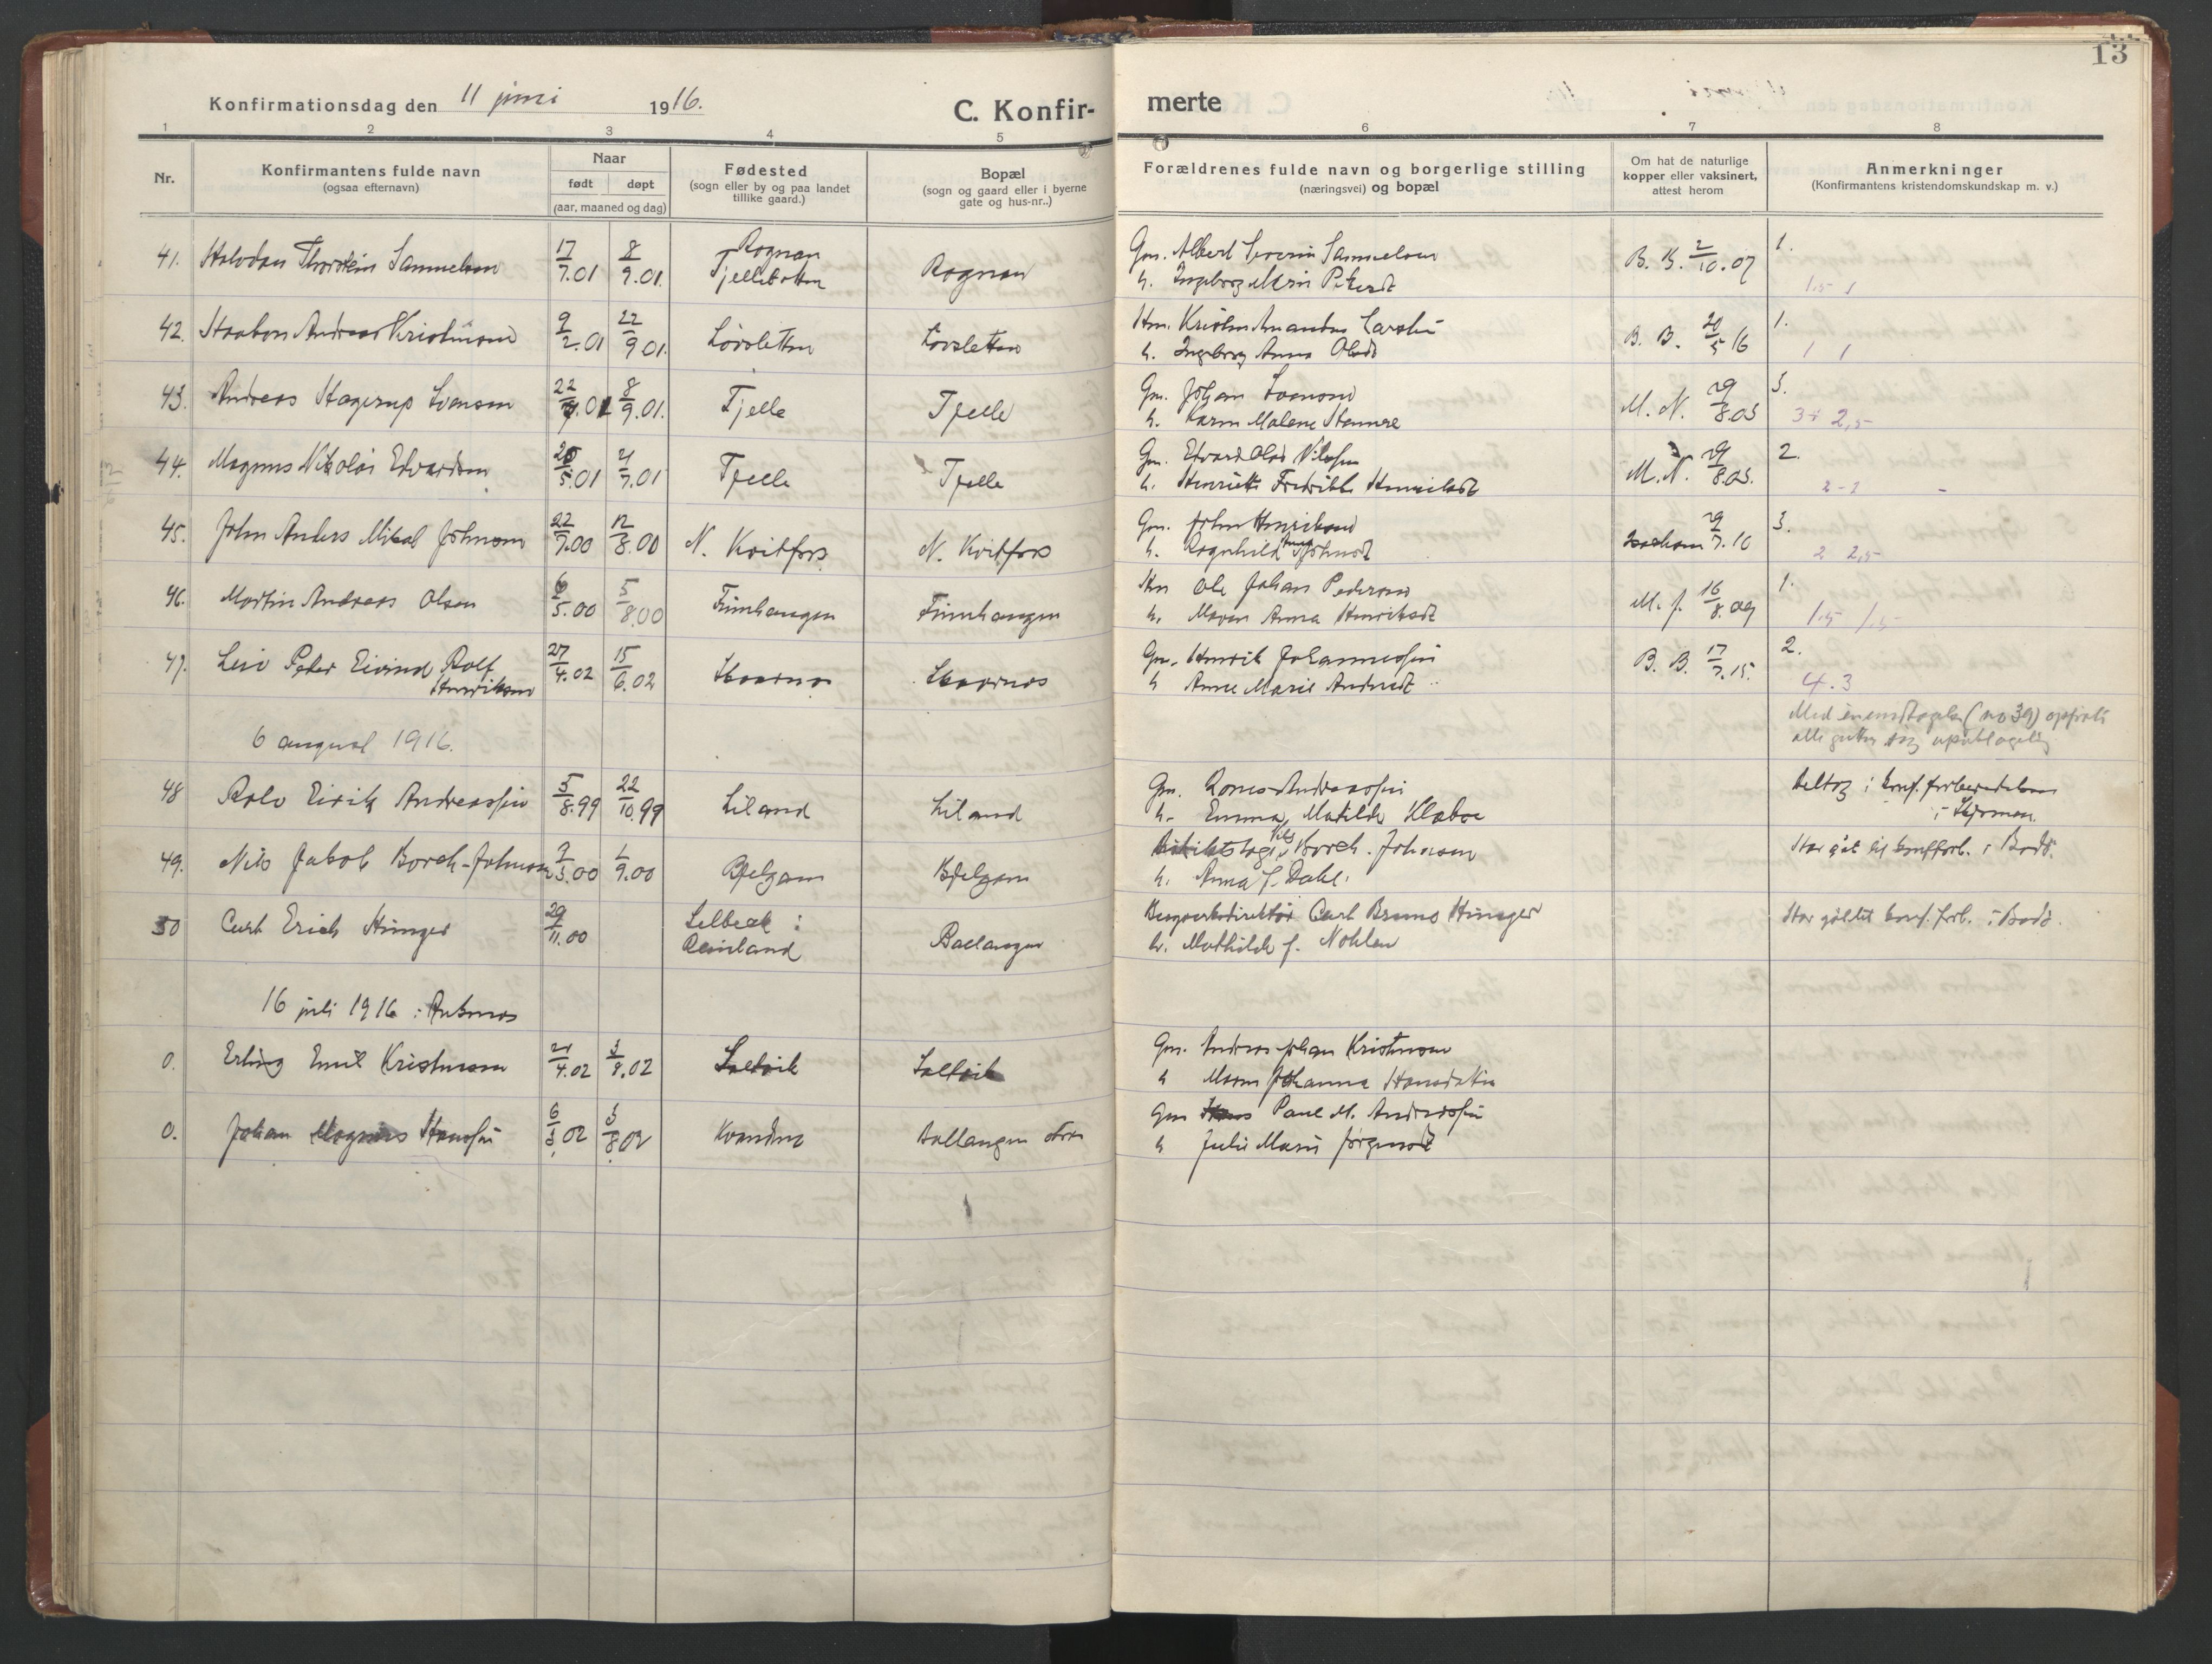 13
Konfirmationsdag den 11 juni 1916.
C. Konfir-
merte
1 2 3 4 5 6 7 8
Nr.
Konfirmantens fulde navn
(ogsaa efternavn)
Naar
født døpt
(aar, maaned og dag)
Fødested
(sogn eller by og paa landet
tillike gaard.)
Bopæl
(sogn og gaard eller i byerne
gate og hus-nr..)
Forældrenes fulde navn og borgerlige stilling
(næringsvei) og bopæl
Om hat de naturlige
kopper eller vaksinert,
attest herom
Anmerkninger
(Konfirmantens kristendomskundskap m. v.)
41. Halvdan Thorstein Samuelsen 17/7.01 8/9.01. Rognan Fjellbotten Rognan Gm. Albert Severin Samuelsen B. B. 2/10.07 1.
h. Ingeborg Marie Pedersdt 1,5 1
42. Haakon Andreas Kristensen 9/2.01 22/9 01. Løvsletten Løvsletten Hm. Kristen Amandus Larsen B. B. 20/5 16 1.
h. Ingeborg Anna Olsdt 1 1
43. Andreas Hagerup Svensen 22/7.01 8/9.01. Fjelle Fjelle Gm. Johan Svensen M. N. 29/8.03 3.
h. Karen Malene Stenmere 3+ 2,5
44. Magnus Nikolai Edvardsen 25/5.01 21/7.01 Fjelle Fjelle Gm. Edvard Olai Nilssen M. N. 29/8.03. 2.
h. Henriette Fredrikke Henriksdt 2-2 -
45. John Anders Mikal Johnsen 22/7.00 12/8.00 N. Kvitfors N. Kvitfors Gm. John Henriksen 29/7.16 3.
h. Ragnhild Johnsdt 2 2,5
46. Martin Andreas Olsen 6/5.00 5/8.00 Finnhaugen Finnhaugen Hm Ole Johan Pedersen M. J. 16/8.09 1.
h. Maren Anna Henriksdt 1.5 1.5
47. Leiv Peder Eivind Rolf 27/4.02 15/6.02 Skarnes Skarnes Gm. Henrik Johannessen B. B. 17/7.15. 2.
Henriksen h Anne Marie Andersdt 4.3
Med en undtagelse (no 39) opførte
alle gutter seg upaaklagelig
6 august 1916.
48 Rolv Eirik Andreassen 5/8.99 22/10.99 Liland Liland Gm. Andreassen Deltog i konf. forberedelsen
h. Emma Matilde Klæboe i
49. Nils Jakob Borch-Johnsen 7/3.00 1/9.00 Bjelgam Bjelgam Distriktslæge Nils Borch-Johnsen Har gåt til konfforb. i Bodø.
h. Anna f. Dahl.
50 Curt Erich Hünger 29/11.00 Selbeck i Ballangen Bergverksdirektør Curt Bruno Hünger Har gåttil konf. forb. i Bodø.
Reinland h. Mathilde f. Nohlen
16 juli 1916 i Ankenes
0. Erling Emil Kristensen 21/4.02 3/8.02 Saltvik Saltvik Gm. Andreas Johan Kristensen
h Maren Johanna Hansdatter
0. Johan Magnus Hanssen 6/3.02 3/8.02 Kvandnes Ballangen Gm Paul M. Andreassen
h Julie Marie Jørgensdt